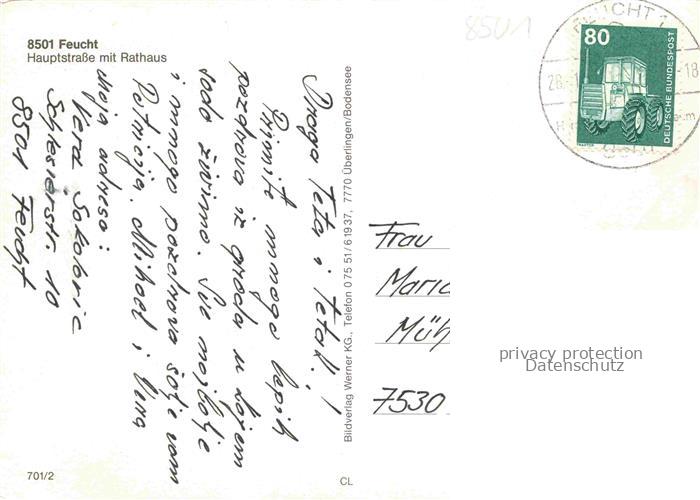 8501 Feucht
Hauptstraße mit Rathaus
8501
FEUCHT 1
80
DEUTSCHE BUNDESPOST
Draga Teta i Tetak!
Primite mnogo lepih
pozdrava iz grada u kojem
sada živimo. Sve najbolje
i mnogo pozdrava šalje vam
Patricija, Mihael i Vera
Moja adresa:
Vera Sokolaric
Schlesierstr. 10
8501 Feucht
Bildverlag Werner KG., Telefon 0 75 51/6 19 37, 7770 Überlingen/Bodensee
Frau
Maria
Müh
7530
privacy protection
Datenschutz
701/2
CL